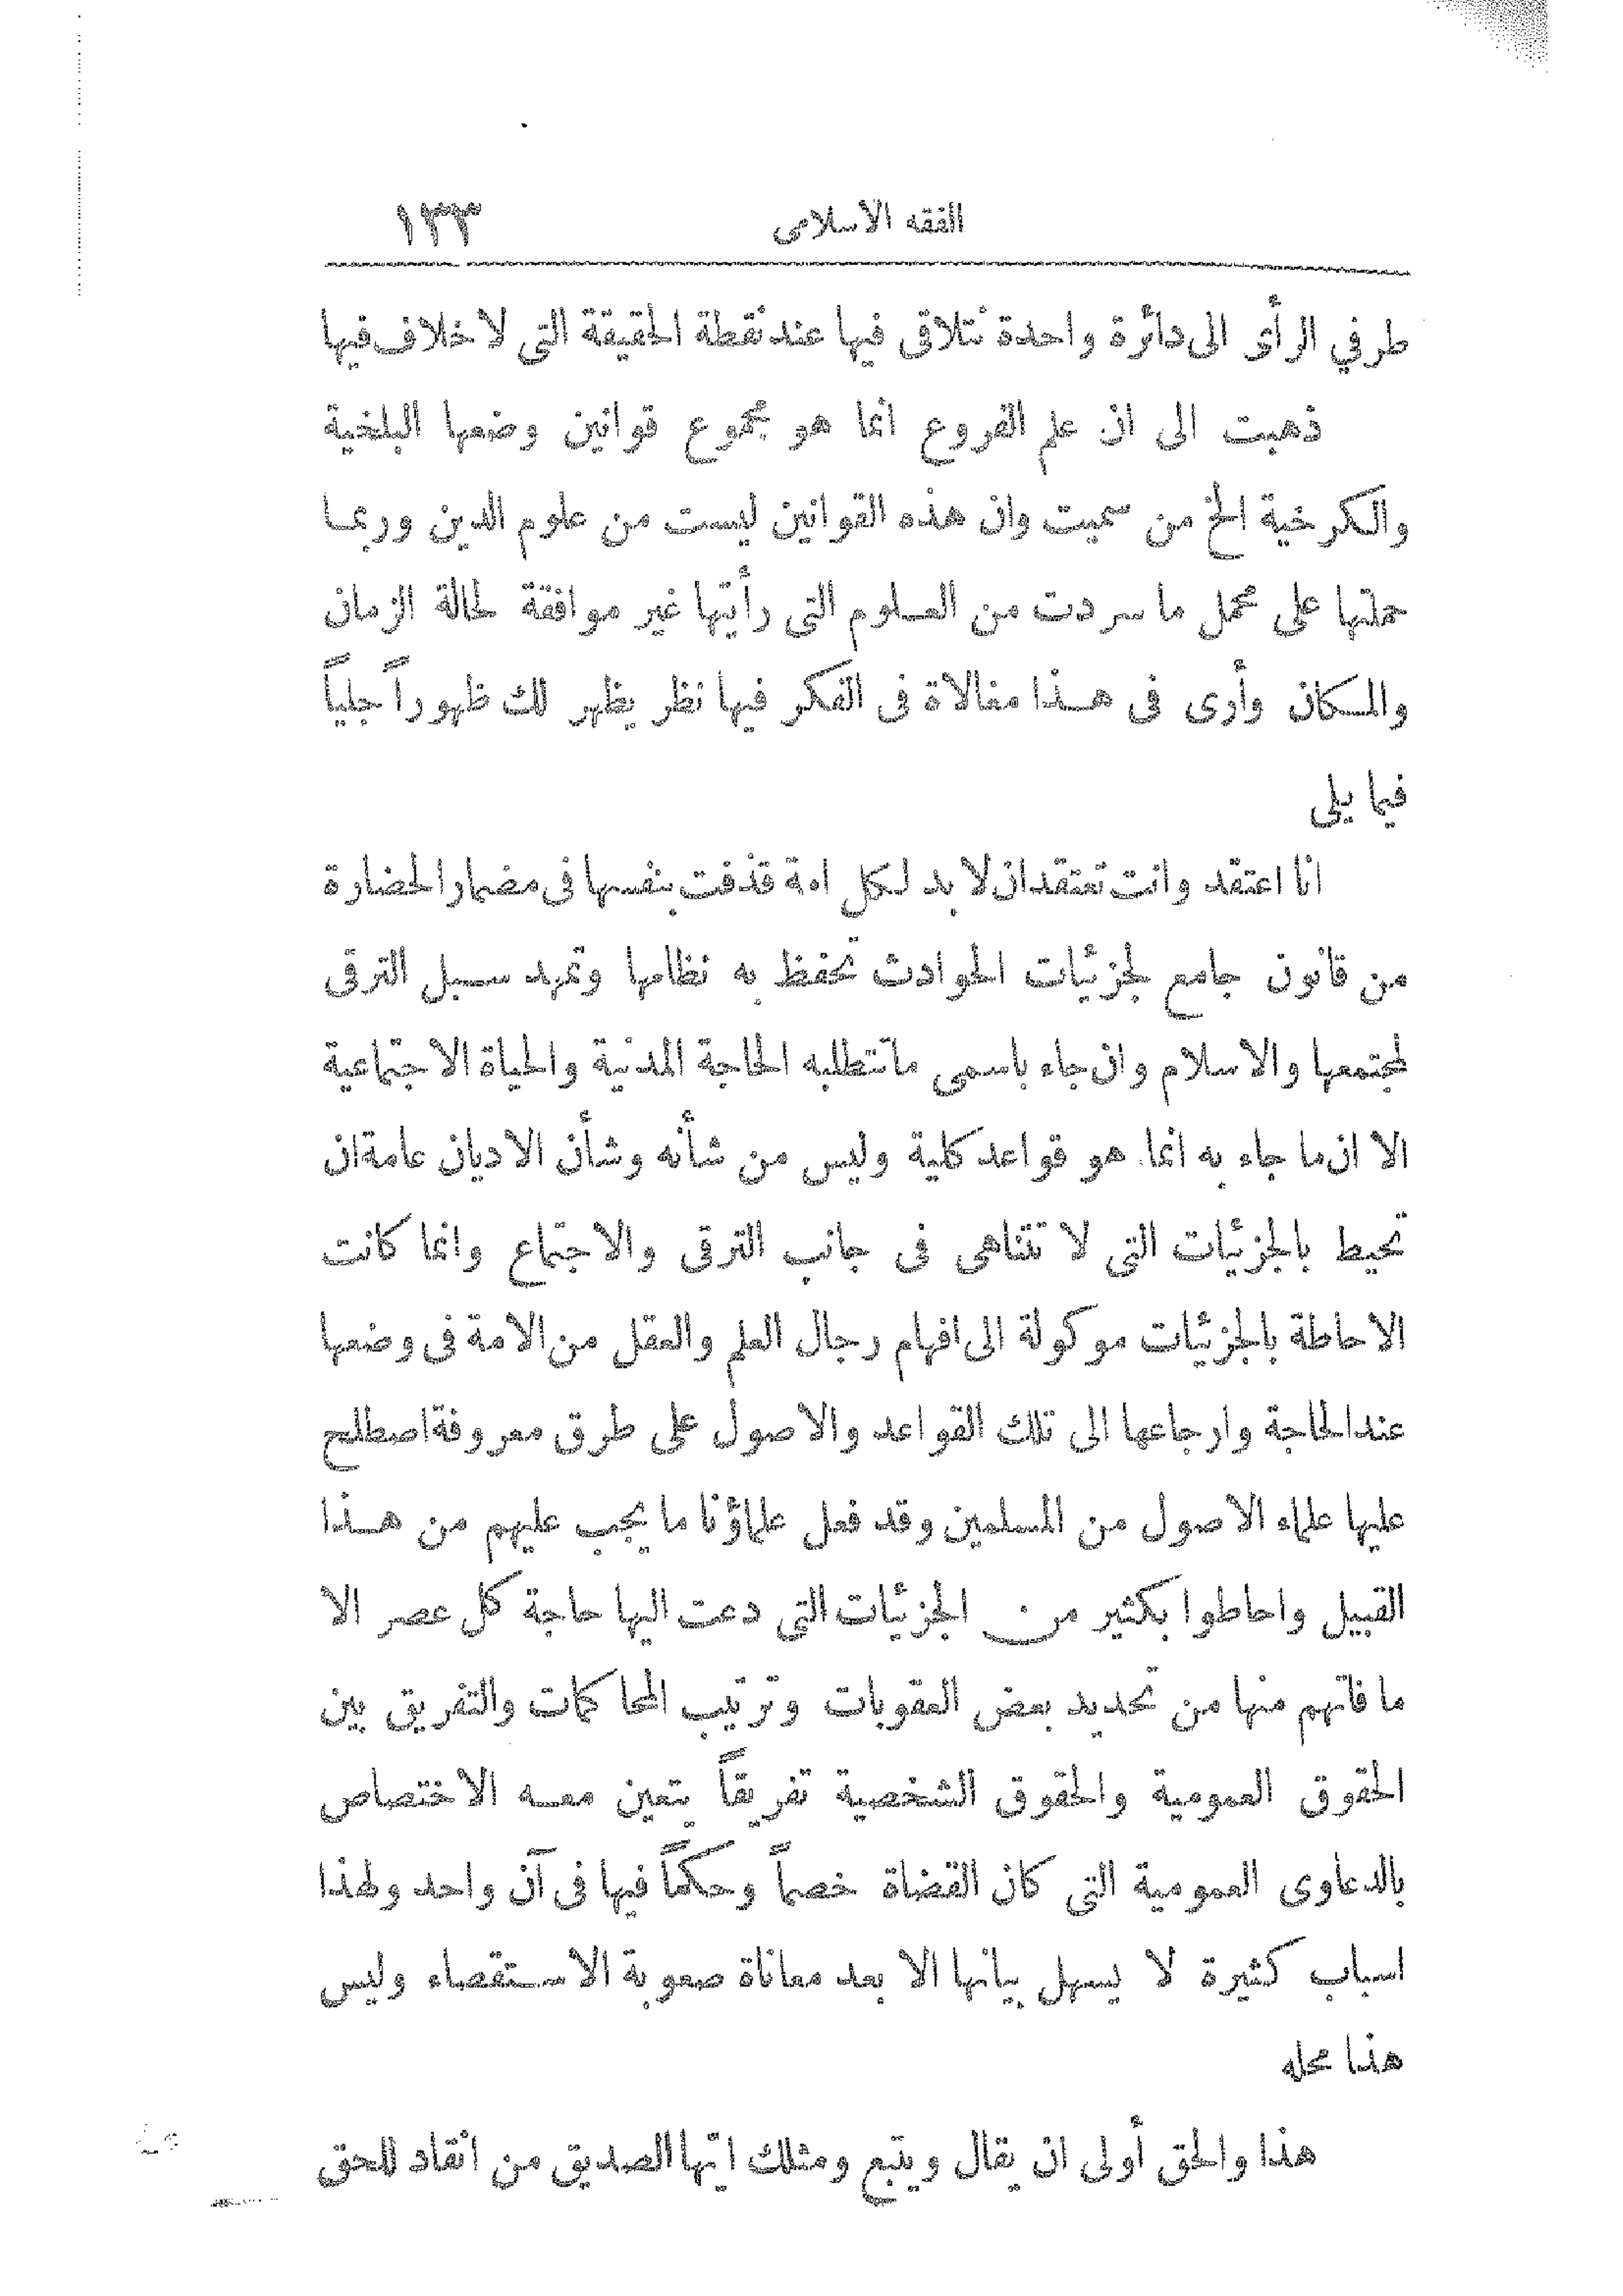 الفقه الاسلامى ١٣٣
طرفي الرأى الى دائرة واحدة نتلاقى فيها عند نقطة الحقيقة التى لا خلاف فيها
ذهبت الى ان علم الفروع انما هو مجموع قوانين وضعها البلخية
والكرخية الخ من سميت وان هذه القوانين ليست من علوم الدين وربما
حملتها على محمل ما سردت من العلوم التى رأيتها غير موافقة لحالة الزمان
والمكان وأرى فى هذا مغالاة فى الفكر فيها نظر يظهر لك ظهوراً جلياً
فيما يلى
انا اعتقد وانت تعتقد ان لا بد لكل امة قذفت بنفسها فى مضمار الحضارة
من قانون جامع لجزئيات الحوادث تحفظ به نظامها وتمهد سبل الترقى
لمجتمعها والاسلام وان جاء باسمى ما تتطلبه الحاجة المدنية والحياة الاجتماعية
الا ان ما جاء به انما هو قواعد كلية وليس من شأنه وشأن الاديان عامة ان
تحيط بالجزئيات التى لا تتناهى فى جانب الترقى والاجتماع وانما كانت
الاحاطة بالجزئيات موكولة الى افهام رجال العلم والعقل من الامة فى وضعها
عند الحاجة وارجاعها الى تلك القواعد والاصول على طرق معروفة اصطلح
عليها علماء الاصول من المسلمين وقد فعل علماؤنا ما يجب عليهم من هذا
القبيل واحاطوا بكثير من الجزئيات التى دعت اليها حاجة كل عصر الا
ما فاتهم منها من تحديد بعض العقوبات وترتيب المحاكمات والتفريق بين
الحقوق العمومية والحقوق الشخصية تفريقاً يتعين معه الاختصاص
بالدعاوى العمومية التى كان القضاة خصماً وحكماً فيها فى آن واحد ولهذا
اسباب كثيرة لا يسهل بيانها الا بعد معاناة صعوبة الاستقصاء وليس
هذا محله
هذا والحق أولى ان يقال ويتبع ومثلك ايها الصديق من انقاد للحق